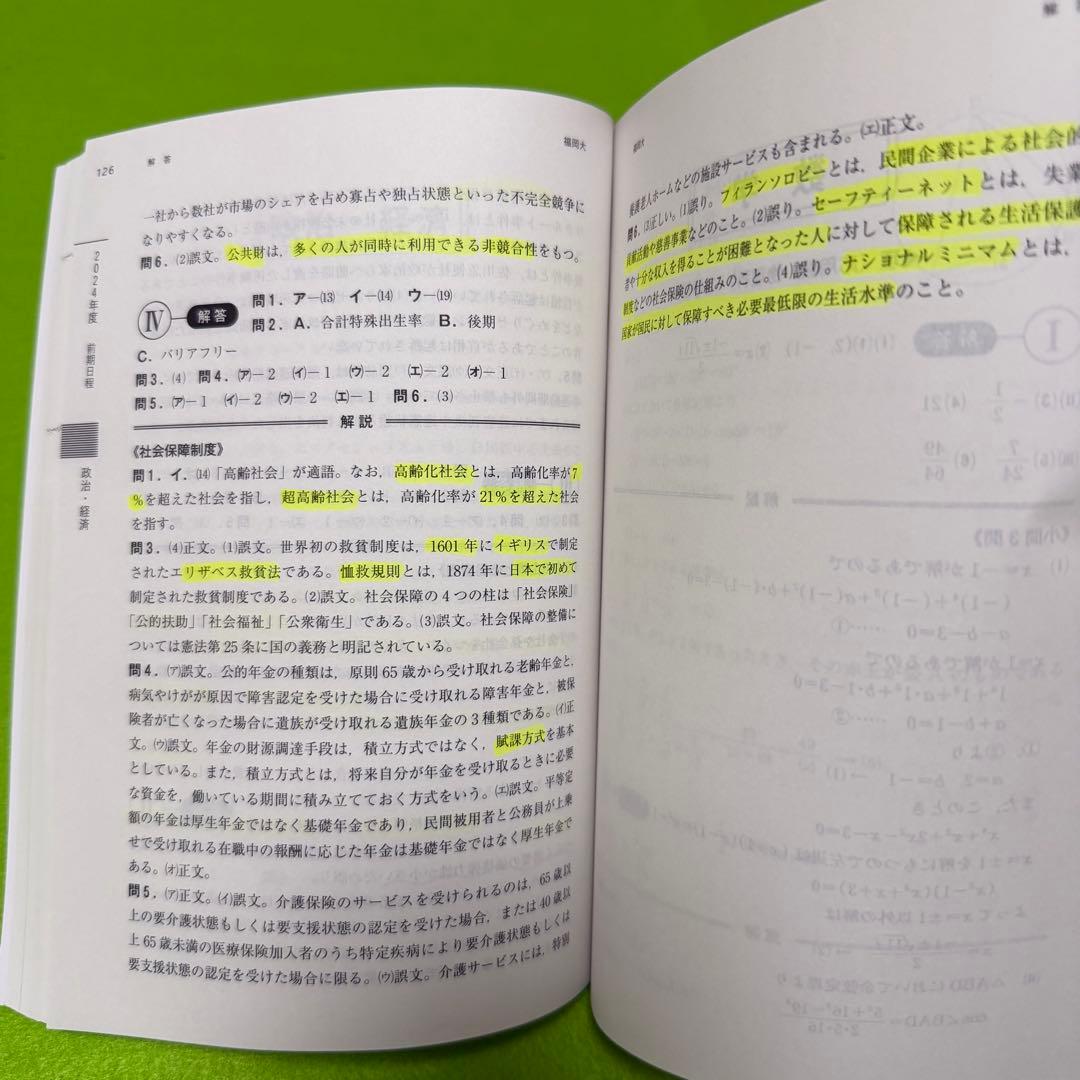 126
解答
福岡大
一社から数社が市場のシェアを占め寡占や独占状態といった不完全競争に
なりやすくなる。
問6．(2)誤文。公共財は，多くの人が同時に利用できる非競合性をもつ。
Ⅳ 解答 問1．ア―(13) イ―(14) ウ―(19)
問2．A．合計特殊出生率 B．後期
C．バリアフリー
問3．(4) 問4．(ア)－2 (イ)－1 (ウ)－2 (エ)－2 (オ)－1
問5．(ア)－1 (イ)－2 (ウ)－2 (エ)－1 問6．(3)
解説
《社会保障制度》
問1．イ．(14)「高齢社会」が適語。なお，高齢化社会とは，高齢化率が7
％を超えた社会を指し，超高齢社会とは，高齢化率が21％を超えた社会
を指す。
問3．(4)正文。(1)誤文。世界初の救貧制度は，1601年にイギリスで制定
されたエリザベス救貧法である。恤救規則とは，1874年に日本で初めて
制定された救貧制度である。(2)誤文。社会保障の4つの柱は「社会保険」
「公的扶助」「社会福祉」「公衆衛生」である。(3)誤文。社会保障の整備に
ついては憲法第25条に国の義務と明記されている。
問4．(ア)誤文。公的年金の種類は，原則65歳から受け取れる老齢年金と，
病気やけがが原因で障害認定を受けた場合に受け取れる障害年金と，被保
険者が亡くなった場合に遺族が受け取れる遺族年金の3種類である。(イ)正
文。(ウ)誤文。年金の財源調達手段は，積立方式ではなく，賦課方式を基本
としている。また，積立方式とは，将来自分が年金を受け取るときに必要
な資金を，働いている期間に積み立てておく方式をいう。(エ)誤文。平等定
額の年金は厚生年金ではなく基礎年金であり，民間被用者と公務員が上乗
せで受け取れる在職中の報酬に応じた年金は基礎年金ではなく厚生年金で
ある。(オ)正文。
問5．(ア)正文。(イ)誤文。介護保険のサービスを受けられるのは，65歳以
上の要介護状態もしくは要支援状態の認定を受けた場合，または40歳以
上65歳未満の医療保険加入者のうち特定疾病により要介護状態もしくは
要支援状態の認定を受けた場合に限る。(ウ)誤文。介護サービスには，特別
2024年度 前期日程
政治・経済
福岡大
解
養護老人ホームなどの施設サービスも含まれる。(エ)正文。
問6．(3)正しい。(1)誤り。フィランソロピーとは，民間企業による社会的
貢献活動や慈善事業などのこと。(2)誤り。セーフティーネットとは，失業
者や十分な収入を得ることが困難となった人に対して保障される生活保護
制度などの社会保険の仕組みのこと。(4)誤り。ナショナルミニマムとは，
国家が国民に対して保障すべき必要最低限の生活水準のこと。